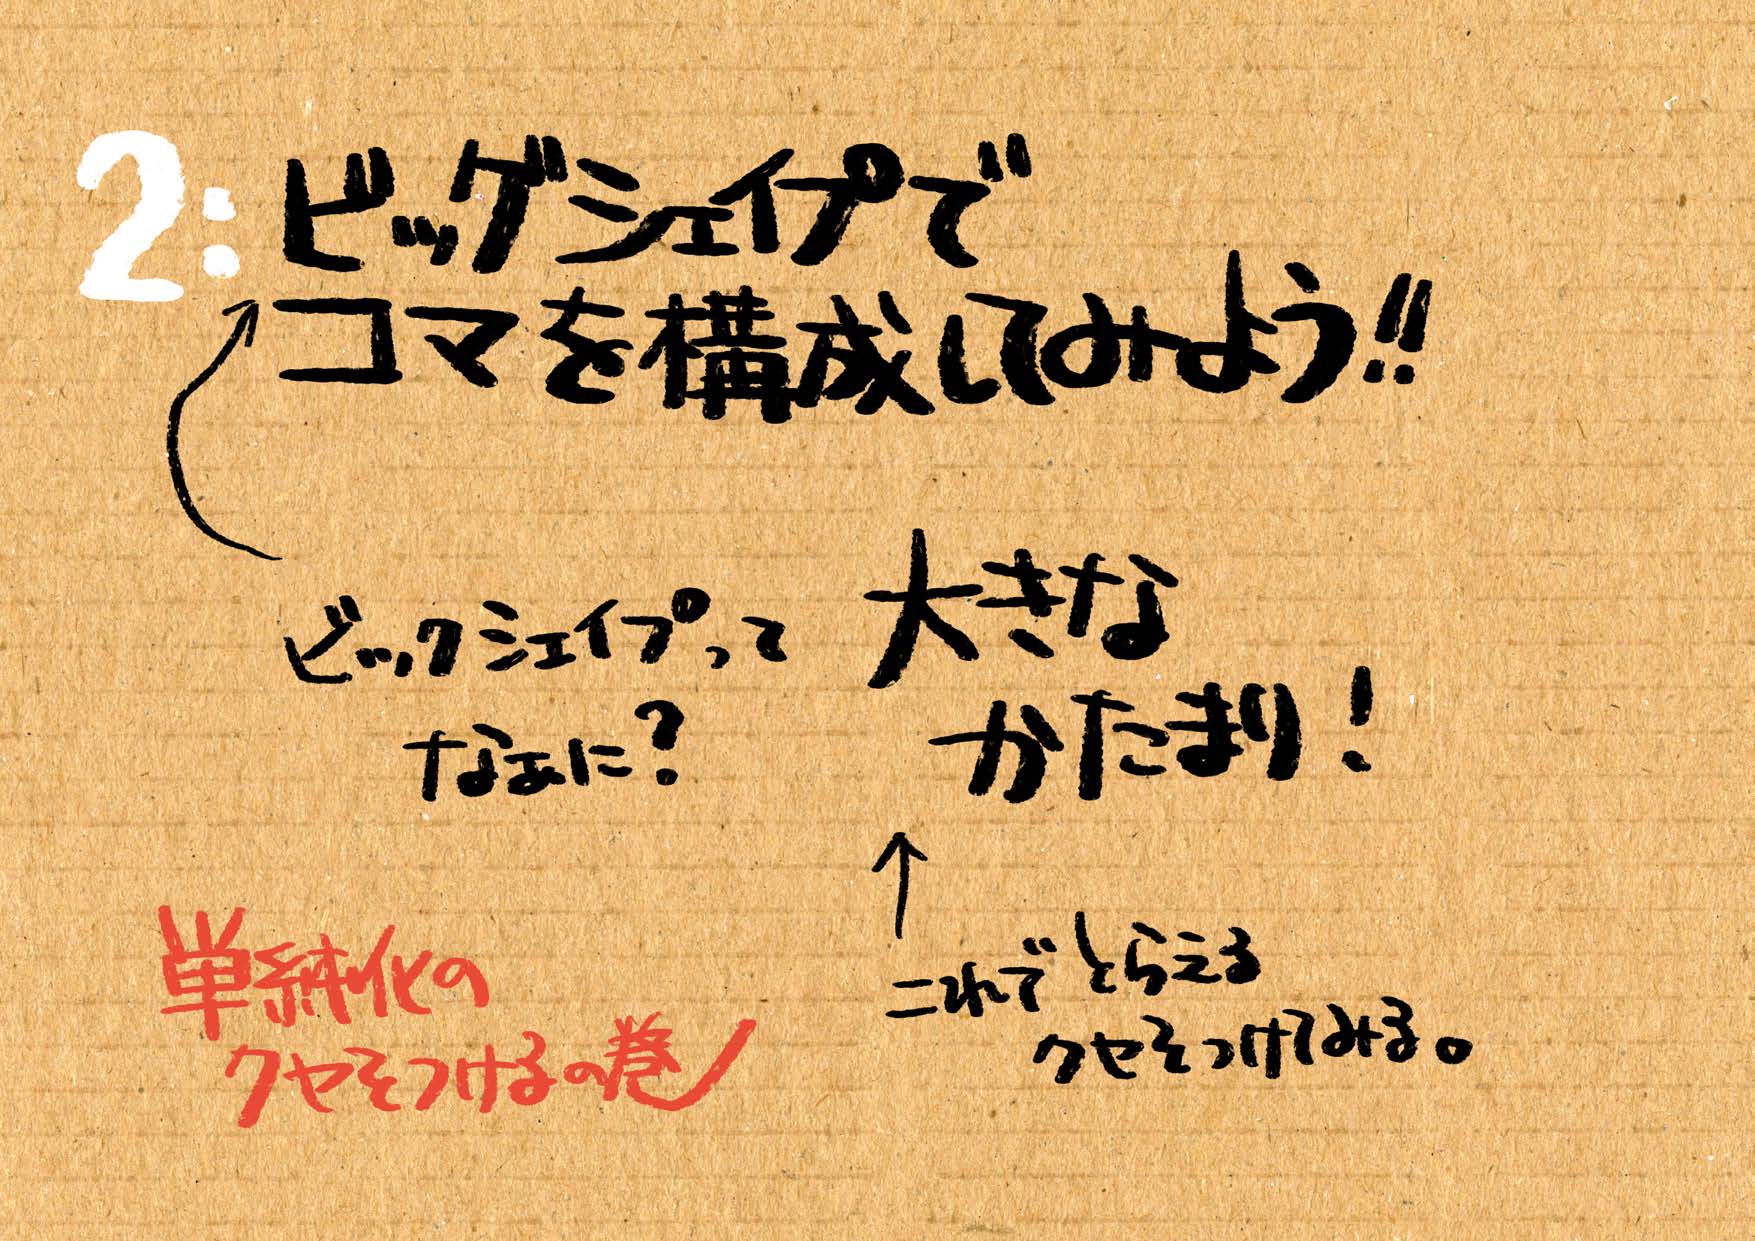 2: ビッグシェイプで
コマを構成してみよう!!
ビックシェイプって
なぁに?
大きな
かたまり!
これでとらえる
クセをつけてみる。
単純化の
クセをつけるの巻